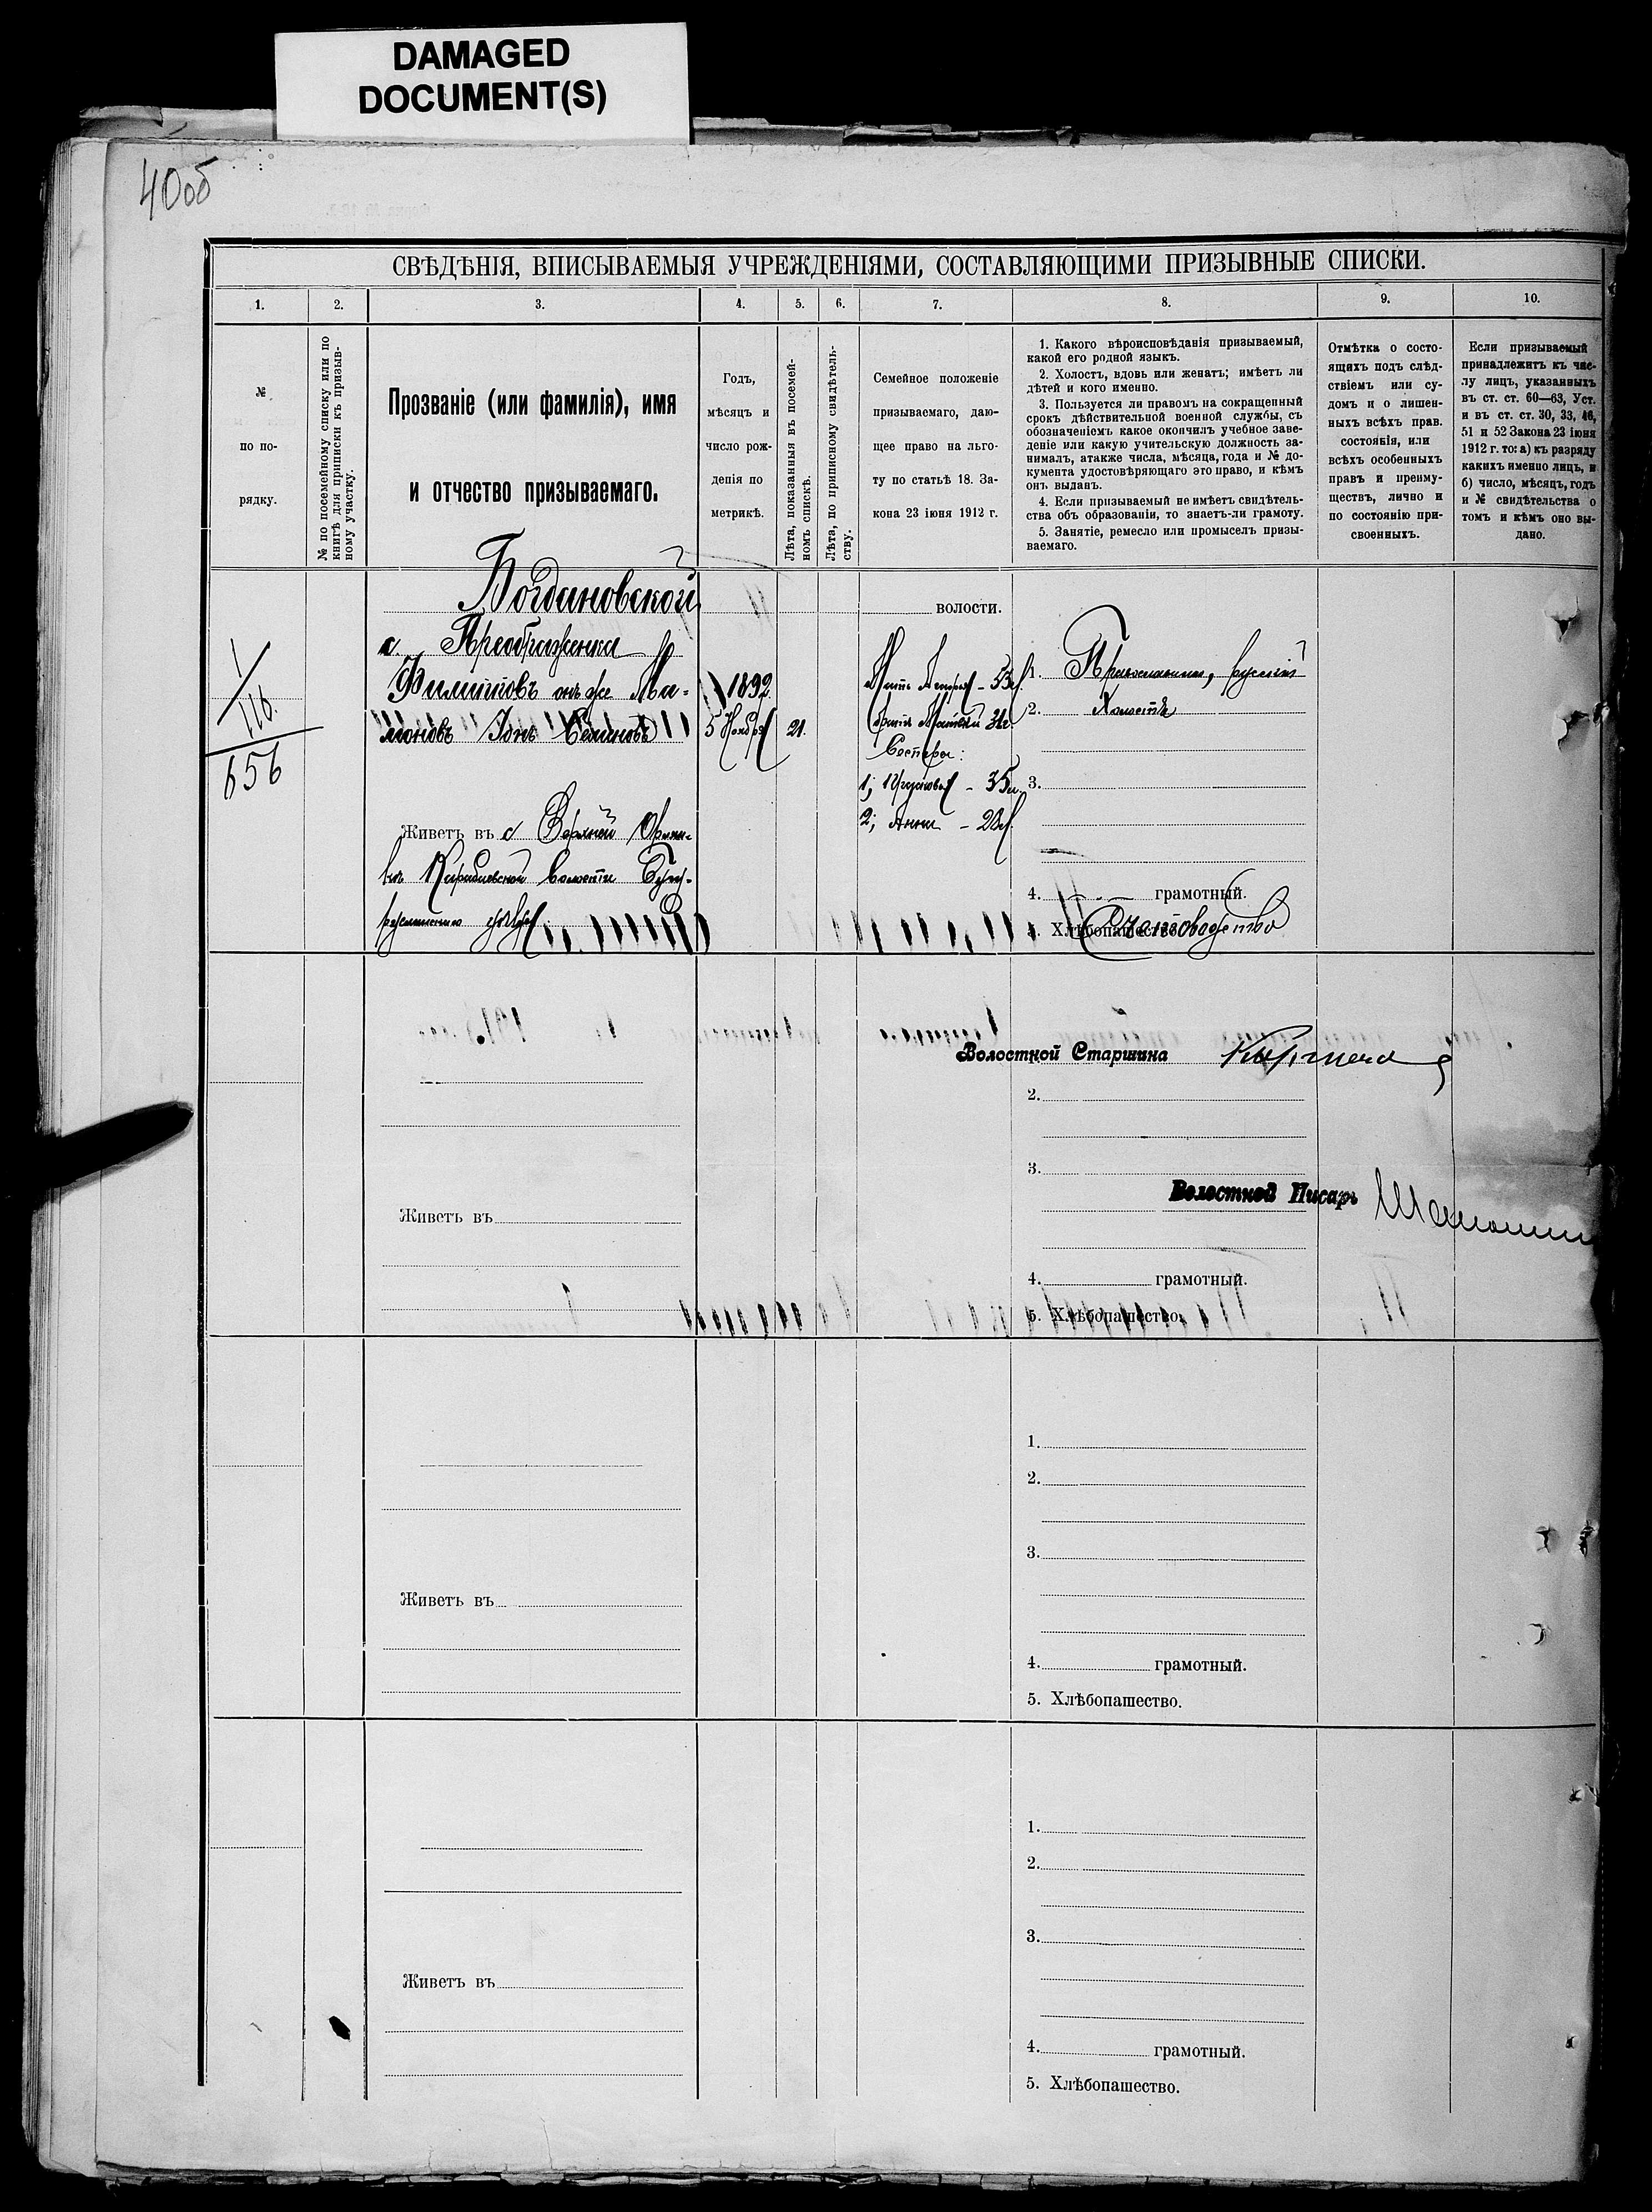 DAMAGED
DOCUMENT(S)
40об
СВѢДѢНІЯ, ВПИСЫВАЕМЫЯ УЧРЕЖДЕНІЯМИ, СОСТАВЛЯЮЩИМИ ПРИЗЫВНЫЕ СПИСКИ.
1. 2. 3. 4. 5. 6. 7. 8. 9. 10.
№
по по-
рядку.
№ по посемейному списку или по
книгѣ для приписки къ призыв-
ному участку.
Прозваніе (или фамилія), имя
и отчество призываемаго.
Годъ,
мѣсяцъ и
число рож-
денія по
метрикѣ.
Лѣта, показанныя въ посемей-
номъ спискѣ.
Лѣта, по приписному свидѣтель-
ству.
Семейное положеніе
призываемаго, даю-
щее право на льго-
ту по статьѣ 18. За-
кона 23 іюня 1912 г.
1. Какого вѣроисповѣданія призываемый,
какой его родной языкъ.
2. Холостъ, вдовъ или женатъ; имѣетъ ли
дѣтей и кого именно.
3. Пользуется ли правомъ на сокращенный
срокъ дѣйствительной военной службы, съ
обозначеніемъ какое окончилъ учебное заве-
деніе или какую учительскую должность за-
нималъ, атакже числа, мѣсяца, года и № до-
кумента удостовѣряющаго это право, и кѣмъ
онъ выданъ.
4. Если призываемый не имѣетъ свидѣтель-
ства объ образованіи, то знаетъ-ли грамоту.
5. Занятіе, ремесло или промыселъ призы-
ваемаго.
Отмѣтка о состо-
ящихъ подъ слѣд-
ствіемъ или су-
домъ и о лишен-
ныхъ всѣхъ прав.
состоянія, или
всѣхъ особенныхъ
правъ и преиму-
ществъ, лично и
по состоянію при-
своенныхъ.
Если призываемый
принадлежитъ къ чис-
лу лицъ, указанныхъ
въ ст. ст. 60—63, Уст.
и въ ст. ст. 30, 33, 46,
51 и 52 Закона 23 іюня
1912 г. то: а) къ разряду
какихъ именно лицъ, и
б) число, мѣсяцъ, годъ
и № свидѣтельства о
томъ и кѣмъ оно вы-
дано.
Богдановской волости.
1/116.
656
с. Преображенка
Филипповъ онъ же Ма-
моновъ Іонъ
1892
5 Ноября
21.
Мать - 53
братъ
Сестры:
1; - 35
2; Анна - 28
1. Православный, русскій
2. Холостъ
3.
4. грамотный.
5. Хлѣбопашество Скотоводство
Живетъ въ с Верхней
волости
уѣзда
Волостной Старшина
2.
3.
Волостной Писарь
Живетъ въ
4. грамотный.
5. Хлѣбопашество.
1.
2.
3.
Живетъ въ
4. грамотный.
5. Хлѣбопашество.
1.
2.
3.
Живетъ въ
4. грамотный.
5. Хлѣбопашество.